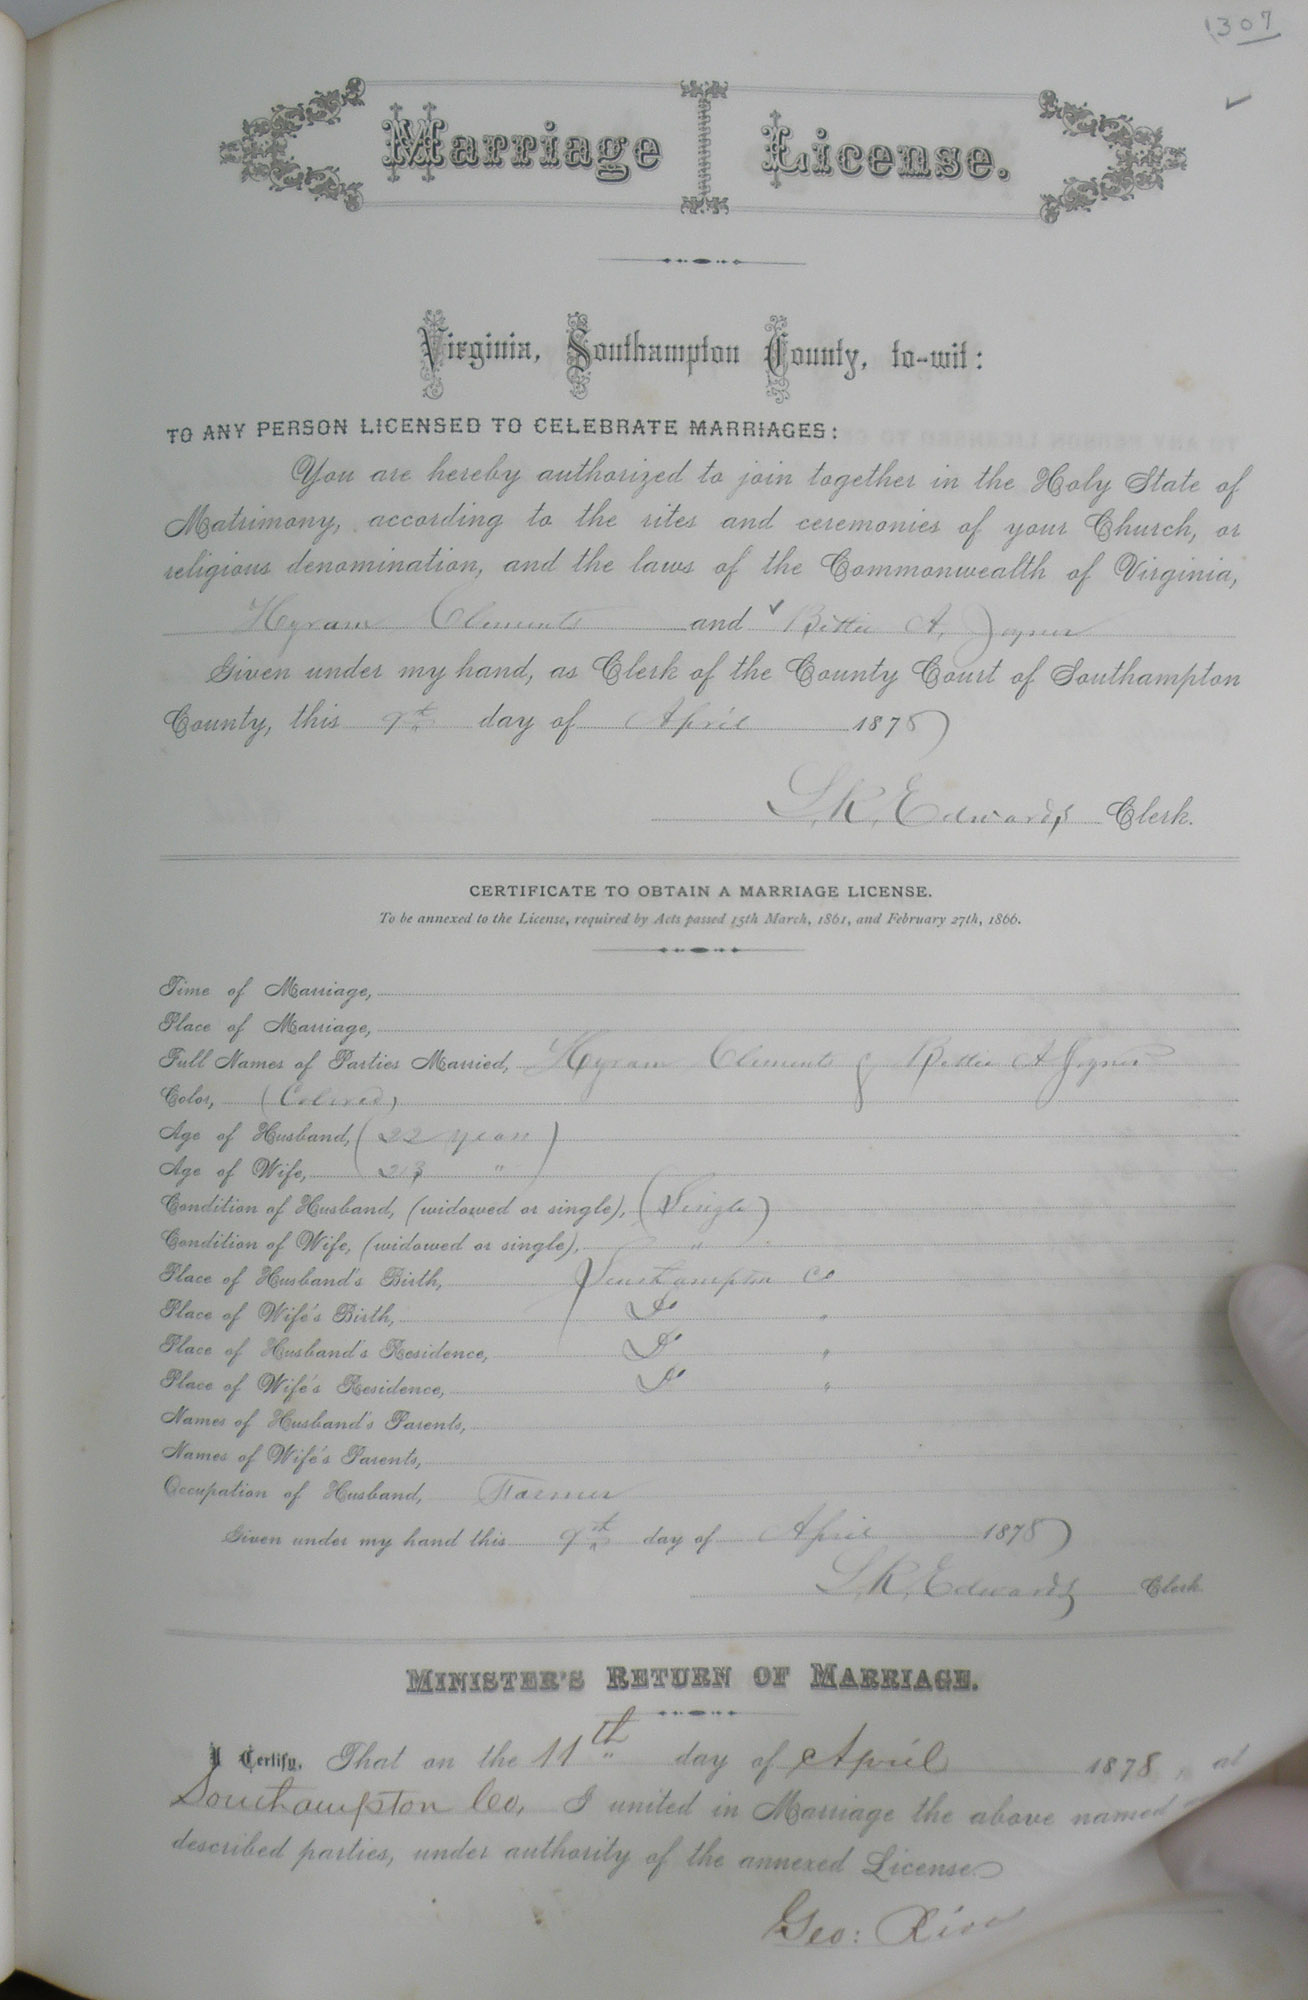 1307
Marriage License.
Virginia, Southampton County, to-wit:
TO ANY PERSON LICENSED TO CELEBRATE MARRIAGES:
You are hereby authorized to join together in the Holy State of
Matrimony, according to the rites and ceremonies of your Church, or
religious denomination, and the laws of the Commonwealth of Virginia,
Hyram Clements and Bettie A. Joyner
Given under my hand, as Clerk of the County Court of Southampton
County, this 9th day of April 1878
L. R. Edwards Clerk.
CERTIFICATE TO OBTAIN A MARRIAGE LICENSE.
To be annexed to the License, required by Acts passed 15th March, 1861, and February 27th, 1866.
Time of Marriage,
Place of Marriage,
Full Names of Parties Married, Hyram Clements & Bettie A Joyner
Color, (Colored)
Age of Husband, (22 years)
Age of Wife, "
Condition of Husband, (widowed or single), (Single)
Condition of Wife, (widowed or single), "
Place of Husband's Birth, Southampton Co
Place of Wife's Birth, Do "
Place of Husband's Residence, Do "
Place of Wife's Residence, Do "
Names of Husband's Parents,
Names of Wife's Parents,
Occupation of Husband, Farmer
Given under my hand this 9th day of April 1878
L. R. Edwards Clerk
MINISTER'S RETURN OF MARRIAGE.
I Certify, That on the 11th day of April 1878, at
Southampton Co, I united in Marriage the above named
described parties, under authority of the annexed License.
Geo: